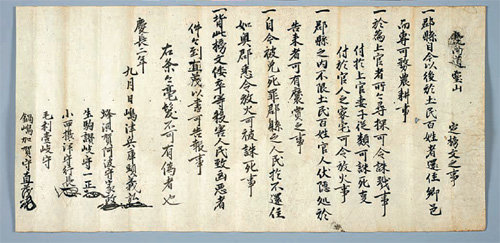 慶尚道霊山
定榜文之事
一郡縣自今以後於土民百姓者還住郷邑
而專可務農耕事
一於為上官者所々尋探可令誅戮事
付於上官妻子従類可誅死矣
付於官人之家宅可令放火事
一郡縣之内不限土民百姓官人伏隠処於
告来者可有褒賞之事
一自今被免死罪郡縣之人民於不還住
如奥郡悉令放火可被誅死事
一背此榜文倭卒等殺害人民致凶悪者
件々到直茂以書可告報事
右条々毫髪不可有偽者也
慶長二年
九月日嶋津兵庫頭義弘
蜂須賀阿波守家政
生駒讃岐守一正
小西摂津守行長
毛利壱岐守
鍋嶋加賀守直茂